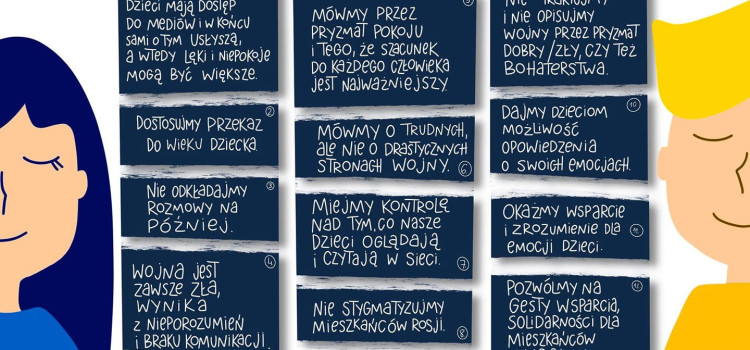 Dzieci mają dostęp
do mediów i w końcu
sami o tym usłyszą,
a wtedy lęki i niepokoje
mogą być większe.
2
Dostosujmy przekaz
do wieku dziecka
3
Nie odkładajmy
rozmowy na
później.
4
Wojna jest
zawsze zła,
wynika
z nieporozumień
i braku komunikacji.
5
Mówmy przez
pryzmat pokoju
i tego, że szacunek
do każdego człowieka
jest najważniejszy.
Mówmy o trudnych,
ale nie o drastycznych
stronach wojny.
6
Miejmy kontrolę
nad tym, co nasze
dzieci oglądają
i czytają w sieci.
7
Nie stygmatyzujmy
mieszkańców Rosji.
8
i nie opisujmy
wojny przez pryzmat
dobry/zły, czy też
bohaterstwa.
10
Dajmy dzieciom
możliwość
opowiedzenia
o swoich emocjach.
Okażmy wsparcie
i zrozumienie dla
emocji dzieci.
11
12
Pozwólmy na
gesty wsparcia,
solidarności dla
mieszkańców